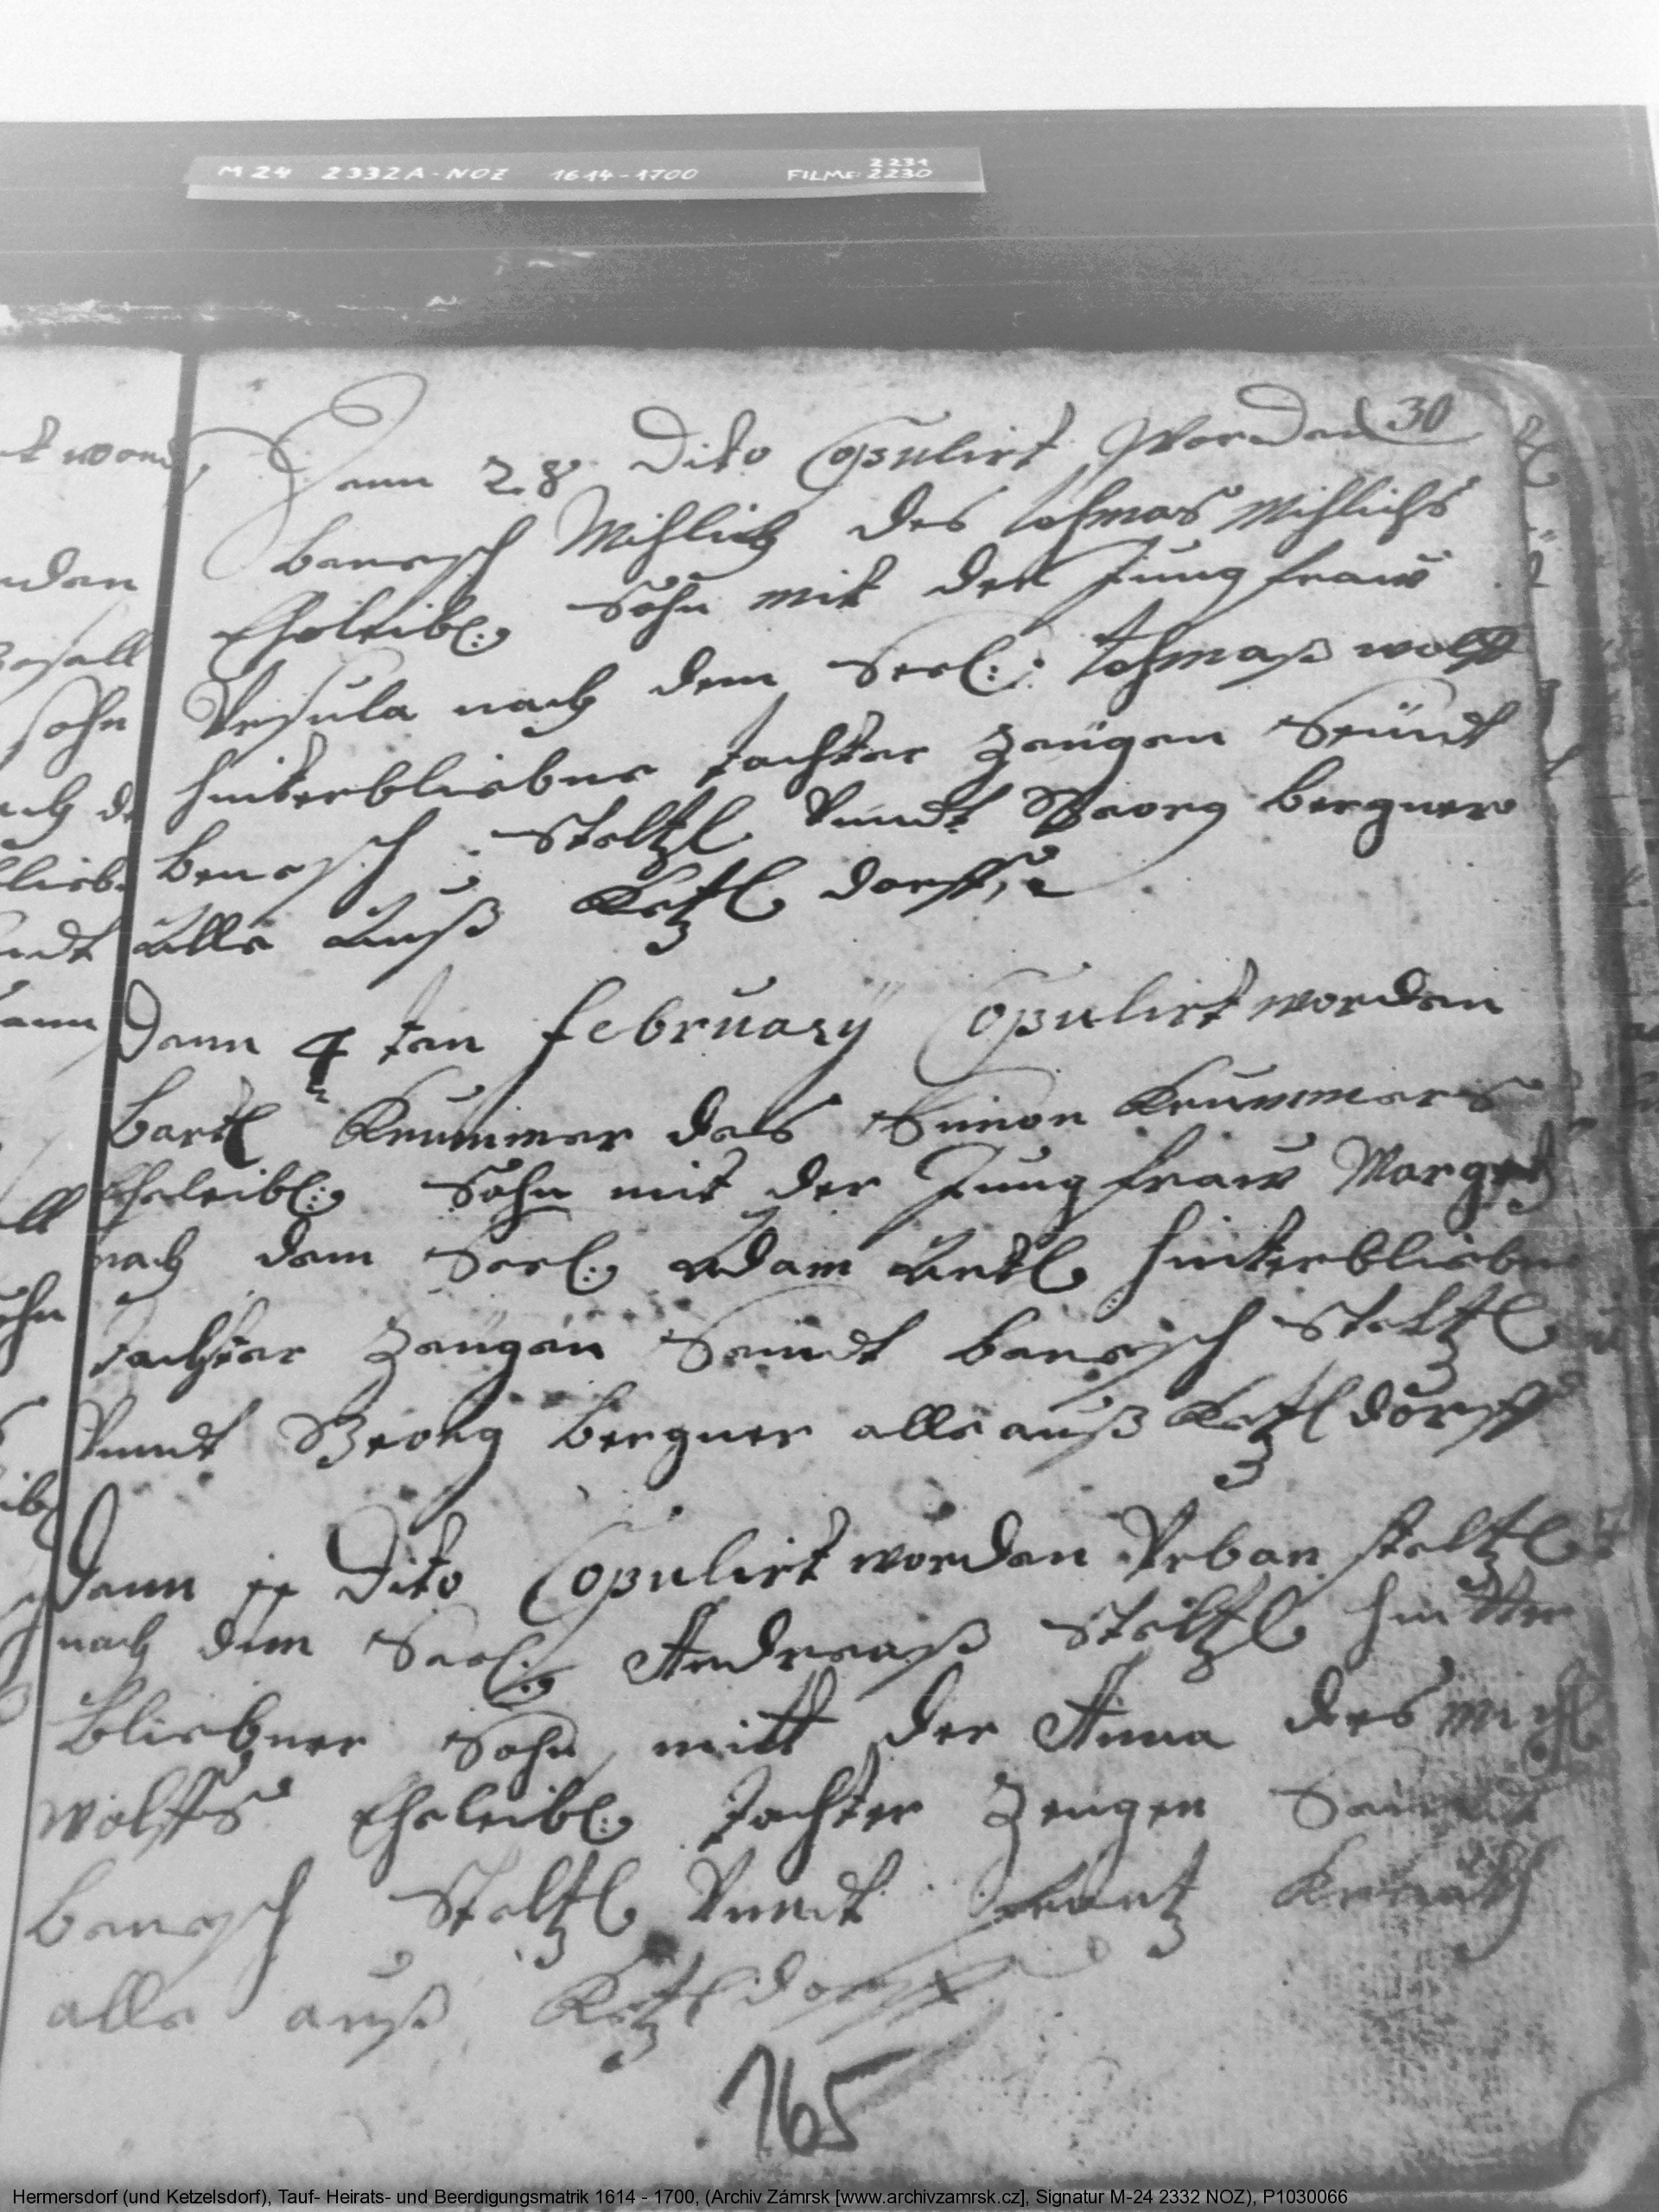 M 24 2332A-NOZ 1614-1700 FILME: 2231 2230
30
Denn 28 Dito Copulirt Worden
Benesch Mihlich des tohmas Mihlichs
Eheleibl: Sohn mit der Jungfraw
Vrsula nach dem Seel: tohmaß wolff
hinterbliebne tochter Zeügen Seündt
Benesch Steltzl Vnndt Georg bergner
Alle Auß Ketzl dorff
Denn 4 ten february Copulirt worden
Bartl Krummer des Simon Krummers
Eheleibl: Sohn mit der Jungfraw Marget
nach dem Seel: Adam Artl hinterbliebne
tochter Zeugen Seindt benesch Steltzl
Vnndt Georg bergner alle auß Ketzl dorff
Denn 11 Dito Copulirt worden Vrban Steltzl
nach dem Seel: Andreaß Steltzl hintter
bliebner Sohn mitt der Anna des Michl
wolffs Eheleibl: tochter Zeugen
Benesch Steltzl Vnndt
alle auß Ketzl dorff
165
Hermersdorf (und Ketzelsdorf), Tauf- Heirats- und Beerdigungsmatrik 1614 - 1700, (Archiv Zámrsk [www.archivzamrsk.cz], Signatur M-24 2332 NOZ), P1030066